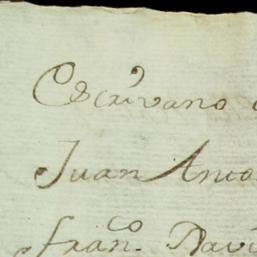 Escrivano
Juan Anto
fran.co Davi